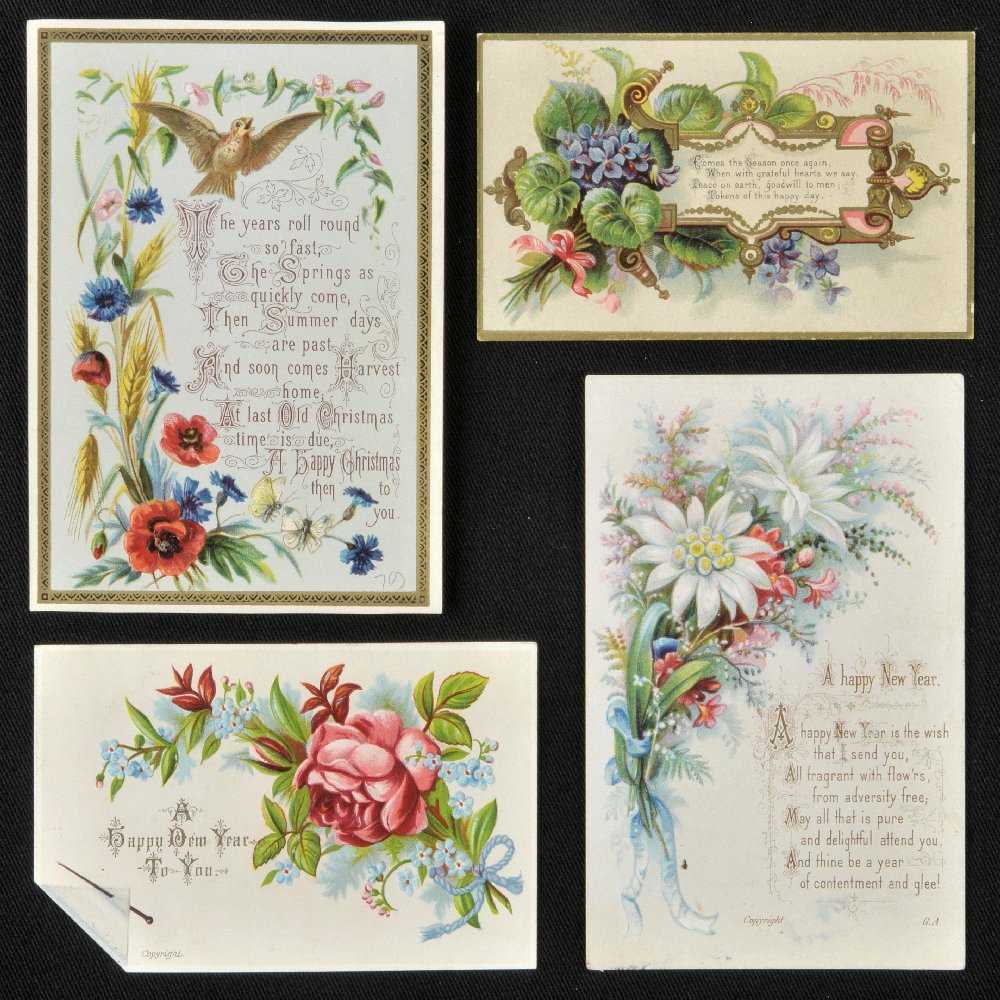 The years roll round
so fast,
The Springs as
quickly come,
Then Summer days
are past
And soon comes Harvest
home,
At last Old Christmas
time is due,
A Happy Christmas
then to
you.
Comes the Season once again,
When with grateful hearts we say,
Peace on earth, goodwill to men,
Tokens of this happy day.
A
Happy New Year
To You.
Copyright.
A happy New Year.
A happy New Year is the wish
that I send you,
All fragrant with flow'rs,
from adversity free;
May all that is pure
and delightful attend you,
And thine be a year
of contentment and glee!
Copyright G.A